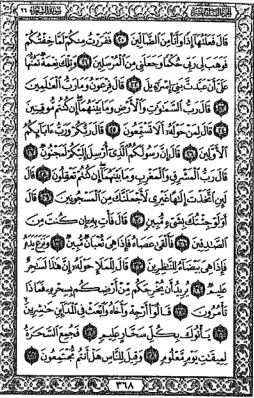 قَالَ فَعَلْتُهَا إِذًا وَأَنَا مِنَ الضَّالِّينَ ٢٠ فَفَرَرْتُ مِنكُمْ لَمَّا خِفْتُكُمْ
فَوَهَبَ لِي رَبِّي حُكْمًا وَجَعَلَنِي مِنَ الْمُرْسَلِينَ ٢١ وَتِلْكَ نِعْمَةٌ تَمُنُّهَا
عَلَيَّ أَنْ عَبَّدتَّ بَنِي إِسْرَائِيلَ ٢٢ قَالَ فِرْعَوْنُ وَمَا رَبُّ الْعَالَمِينَ
٢٣ قَالَ رَبُّ السَّمَاوَاتِ وَالْأَرْضِ وَمَا بَيْنَهُمَا إِن كُنتُم مُّوقِنِينَ
٢٤ قَالَ لِمَنْ حَوْلَهُ أَلَا تَسْتَمِعُونَ ٢٥ قَالَ رَبُّكُمْ وَرَبُّ آبَائِكُمُ
الْأَوَّلِينَ ٢٦ قَالَ إِنَّ رَسُولَكُمُ الَّذِي أُرْسِلَ إِلَيْكُمْ لَمَجْنُونٌ ٢٧
قَالَ رَبُّ الْمَشْرِقِ وَالْمَغْرِبِ وَمَا بَيْنَهُمَا إِن كُنتُمْ تَعْقِلُونَ ٢٨ قَالَ
لَئِنِ اتَّخَذْتَ إِلَٰهًا غَيْرِي لَأَجْعَلَنَّكَ مِنَ الْمَسْجُونِينَ ٢٩ قَالَ
أَوَلَوْ جِئْتُكَ بِشَيْءٍ مُّبِينٍ ٣٠ قَالَ فَأْتِ بِهِ إِن كُنتَ مِنَ
الصَّادِقِينَ ٣١ فَأَلْقَىٰ عَصَاهُ فَإِذَا هِيَ ثُعْبَانٌ مُّبِينٌ ٣٢ وَنَزَعَ يَدَهُ
فَإِذَا هِيَ بَيْضَاءُ لِلنَّاظِرِينَ ٣٣ قَالَ لِلْمَلَإِ حَوْلَهُ إِنَّ هَٰذَا لَسَاحِرٌ
عَلِيمٌ ٣٤ يُرِيدُ أَن يُخْرِجَكُم مِّنْ أَرْضِكُم بِسِحْرِهِ فَمَاذَا
تَأْمُرُونَ ٣٥ قَالُوا أَرْجِهْ وَأَخَاهُ وَابْعَثْ فِي الْمَدَائِنِ حَاشِرِينَ
٣٦ يَأْتُوكَ بِكُلِّ سَحَّارٍ عَلِيمٍ ٣٧ فَجُمِعَ السَّحَرَةُ
لِمِيقَاتِ يَوْمٍ مَّعْلُومٍ ٣٨ وَقِيلَ لِلنَّاسِ هَلْ أَنتُم مُّجْتَمِعُونَ ٣٩
٣٦٨